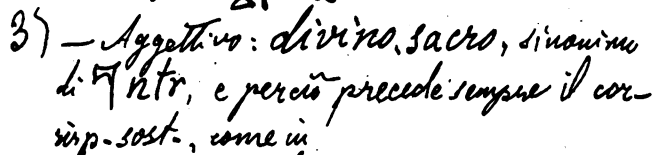 3) — Aggettivo: divino, sacro, sinonimo
di 𓊹 ntr, e perciò precede sempre il cor-
risp. sost., come in